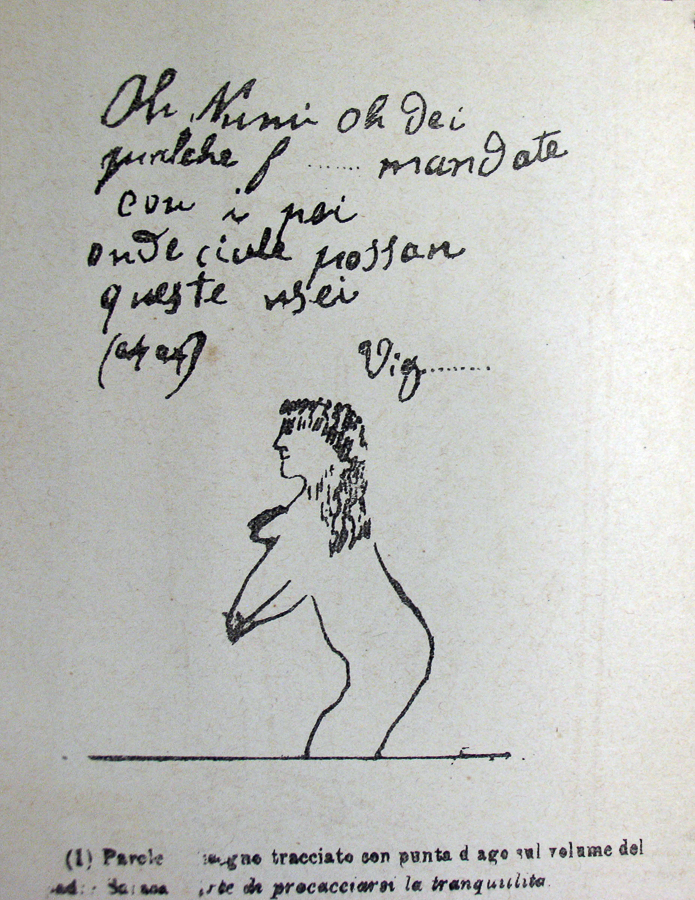 Oh Numi oh dei
qualche f ...... mandate
con i pei
onde ciule possan
queste usei
(ah ah)
Vig........
(1) Parole segno tracciato con punta d ago sul volume del
arte di procacciarsi la tranquillita